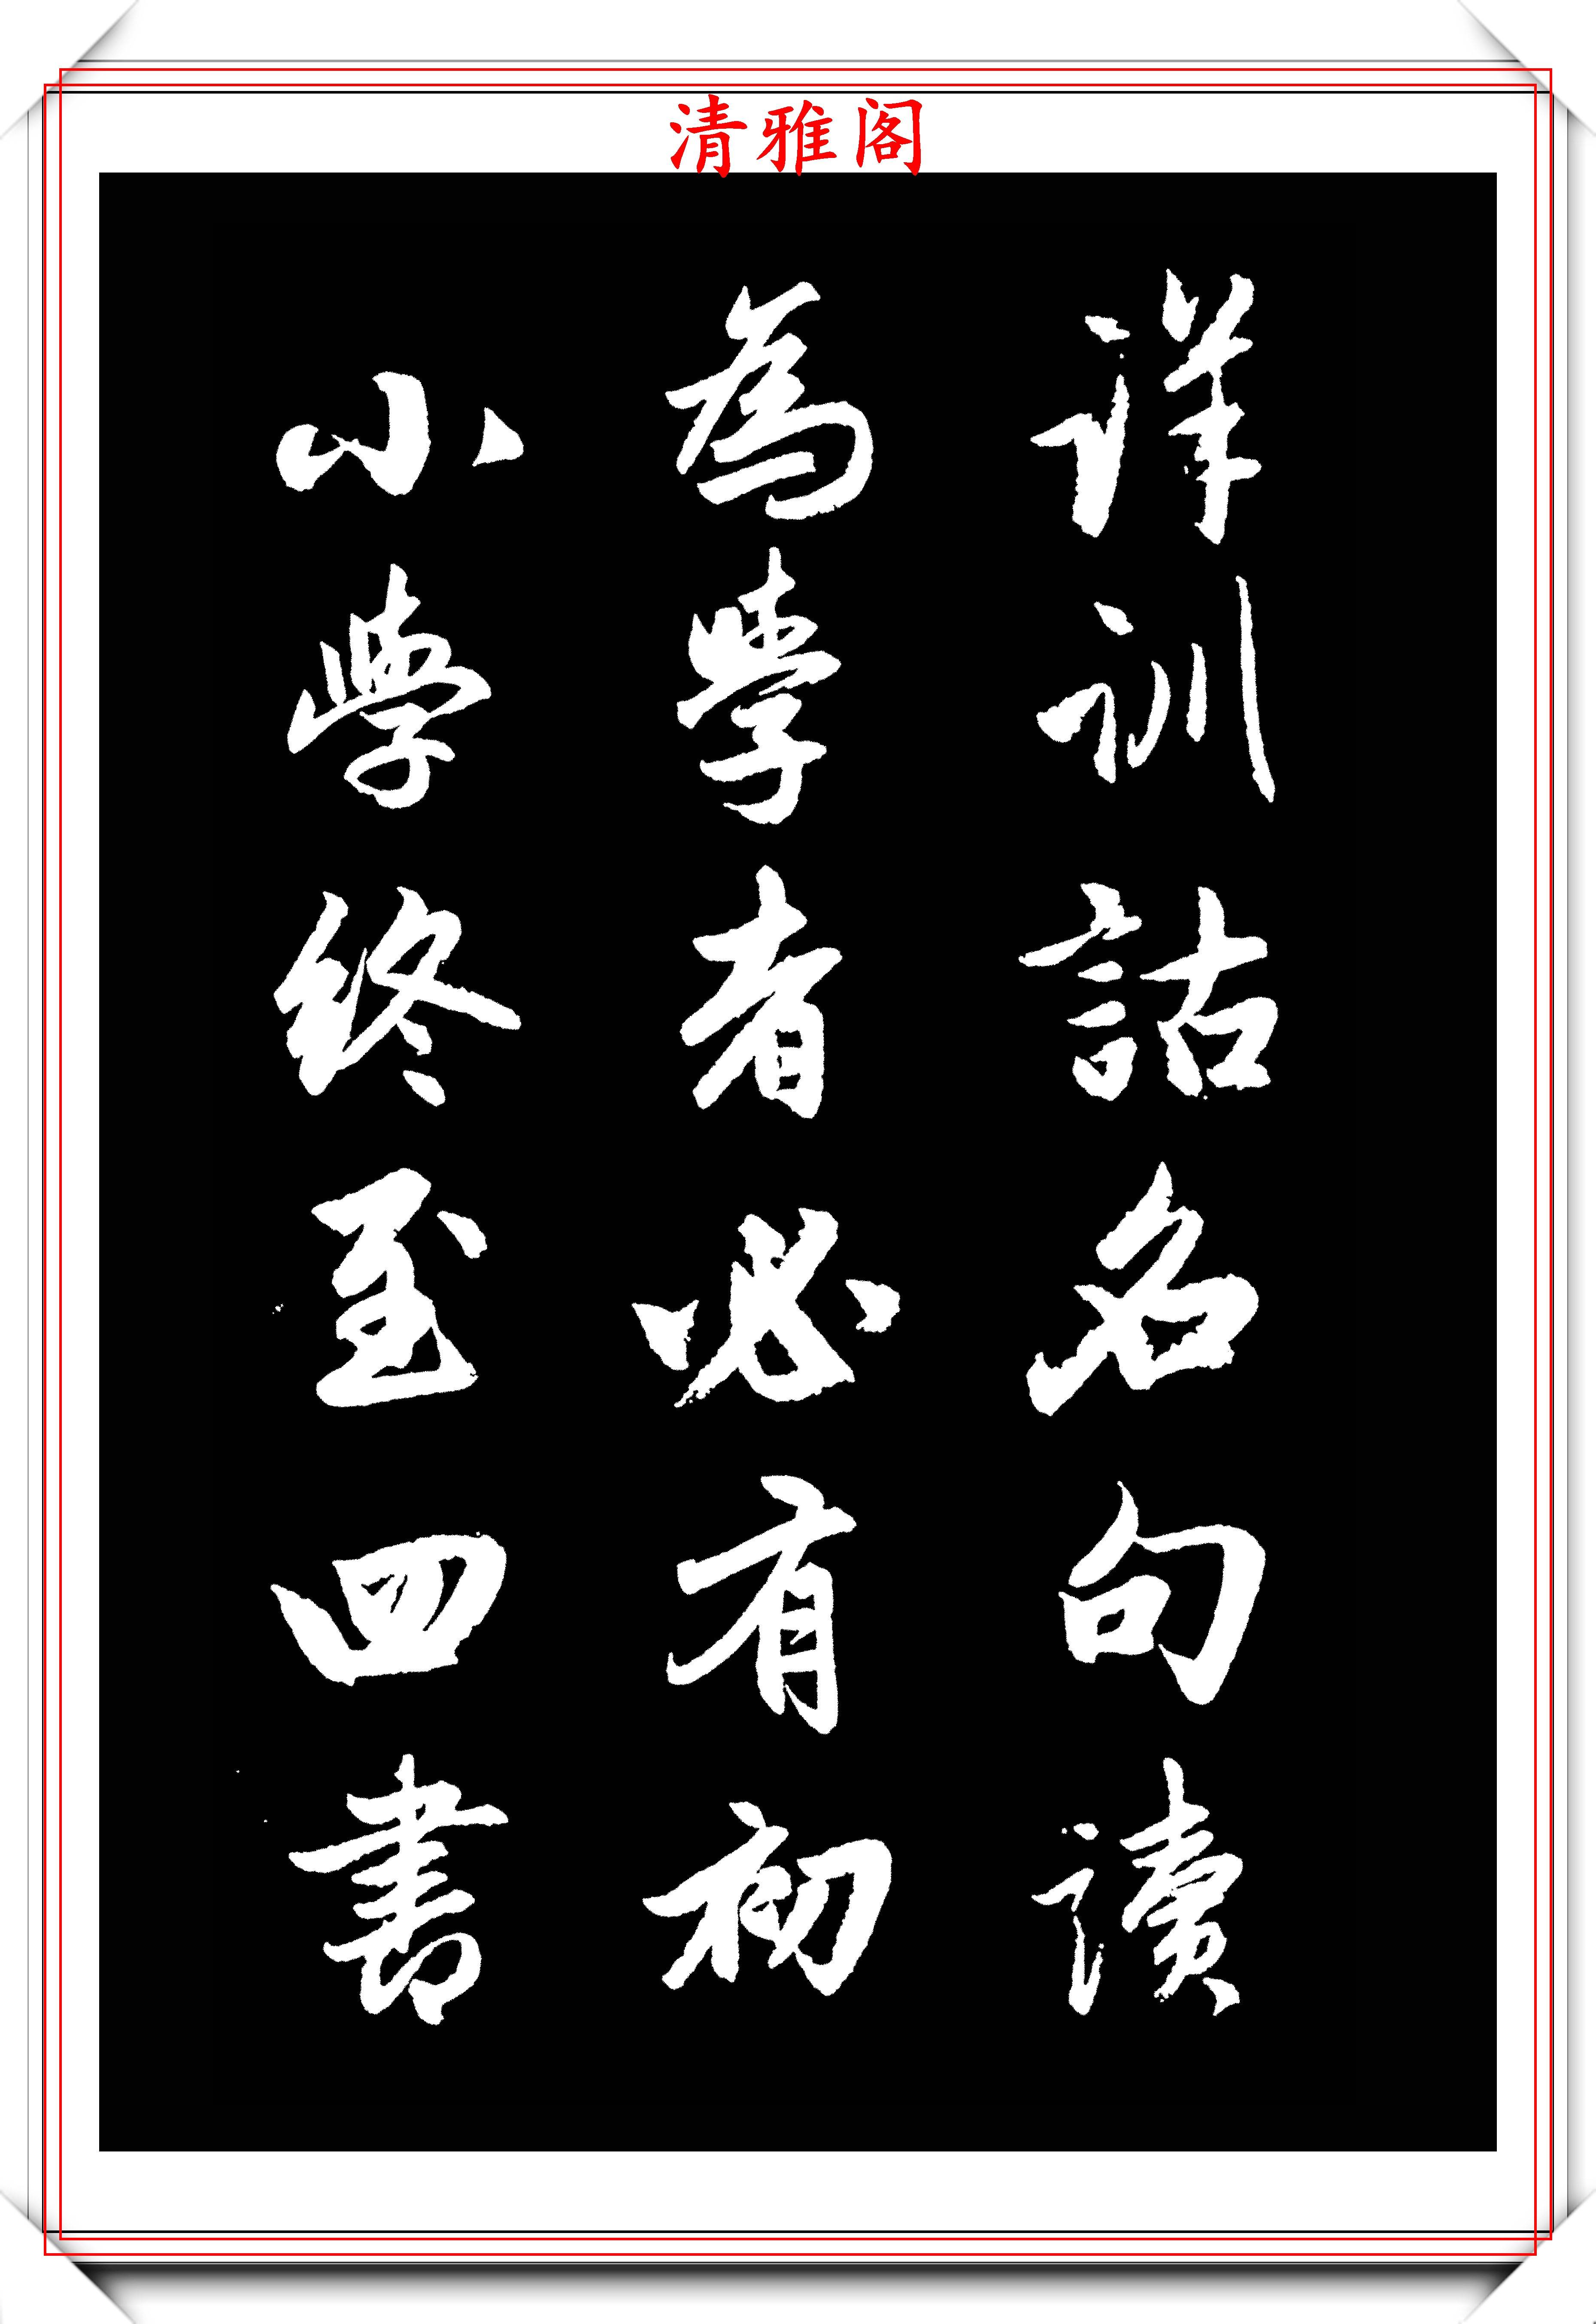 清雅阁
詳訓詁名句讀
為學者必有初
小學終至四書